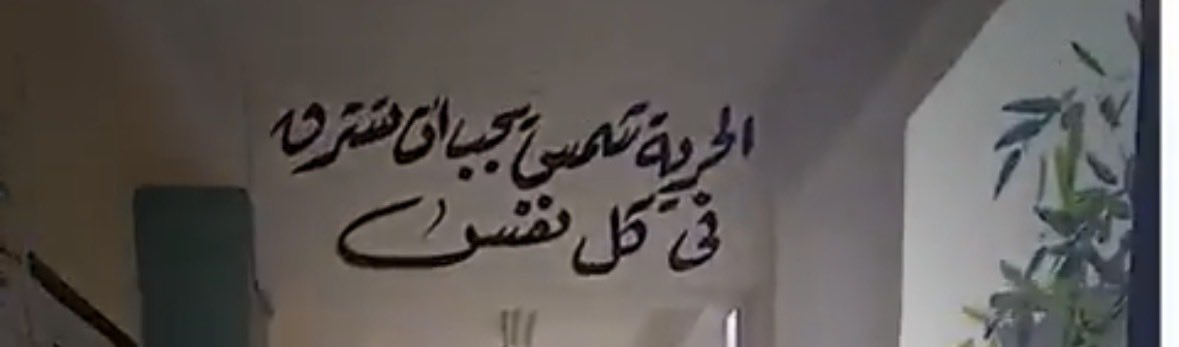 الحرية شمس يجب ان تشرق
في كل نفس